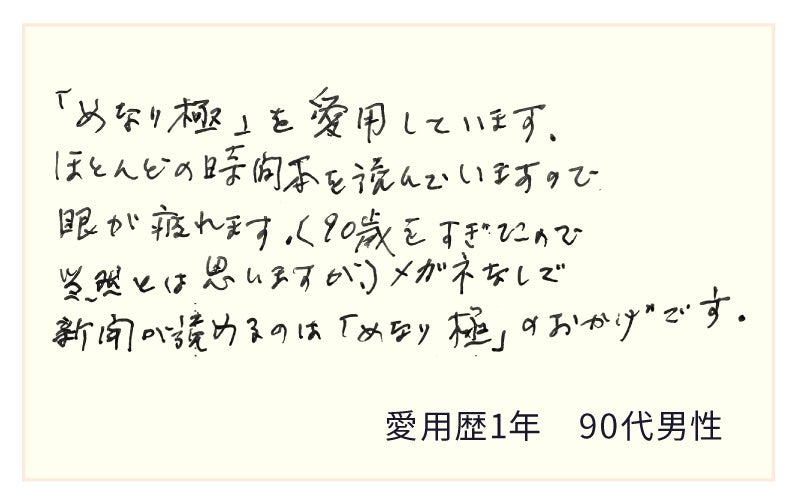 「めなり極」を愛用しています.
ほとんどの時間本を読んでいますので
眼が疲れます.(90歳をすぎたので
当然とは思いますが、)メガネなしで
新聞が読めるのは「めなり極」のおかげです.
愛用歴1年 90代男性